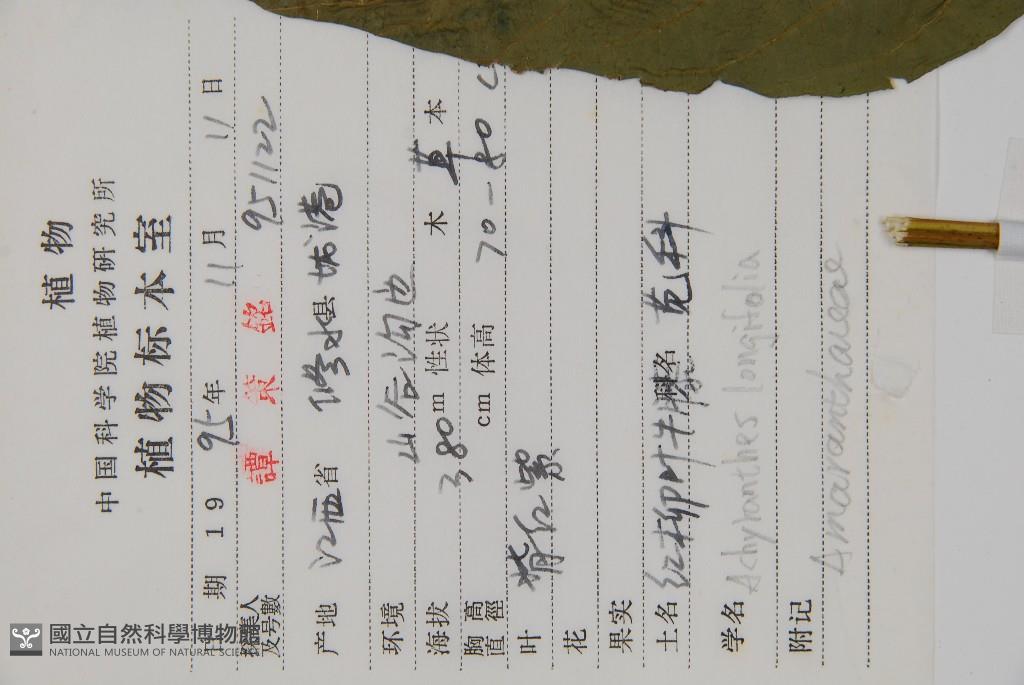 植物
中国科学院植物研究所
植物标本室
期 1995年 11月 11日
及号數 譚策銘 951122
产地 江西省 修水县 港
环境 山谷沟边
海拔 380m 性状 木 草 本
胸高直徑 cm 体高 70—80 c
叶 背红紫
花
果实
土名 红柳叶牛膝 科名 苋科
学名 Achyranthes longifolia
附记 Amaranthaceae
國立自然科學博物館
NATIONAL MUSEUM OF NATURAL SCIENCE